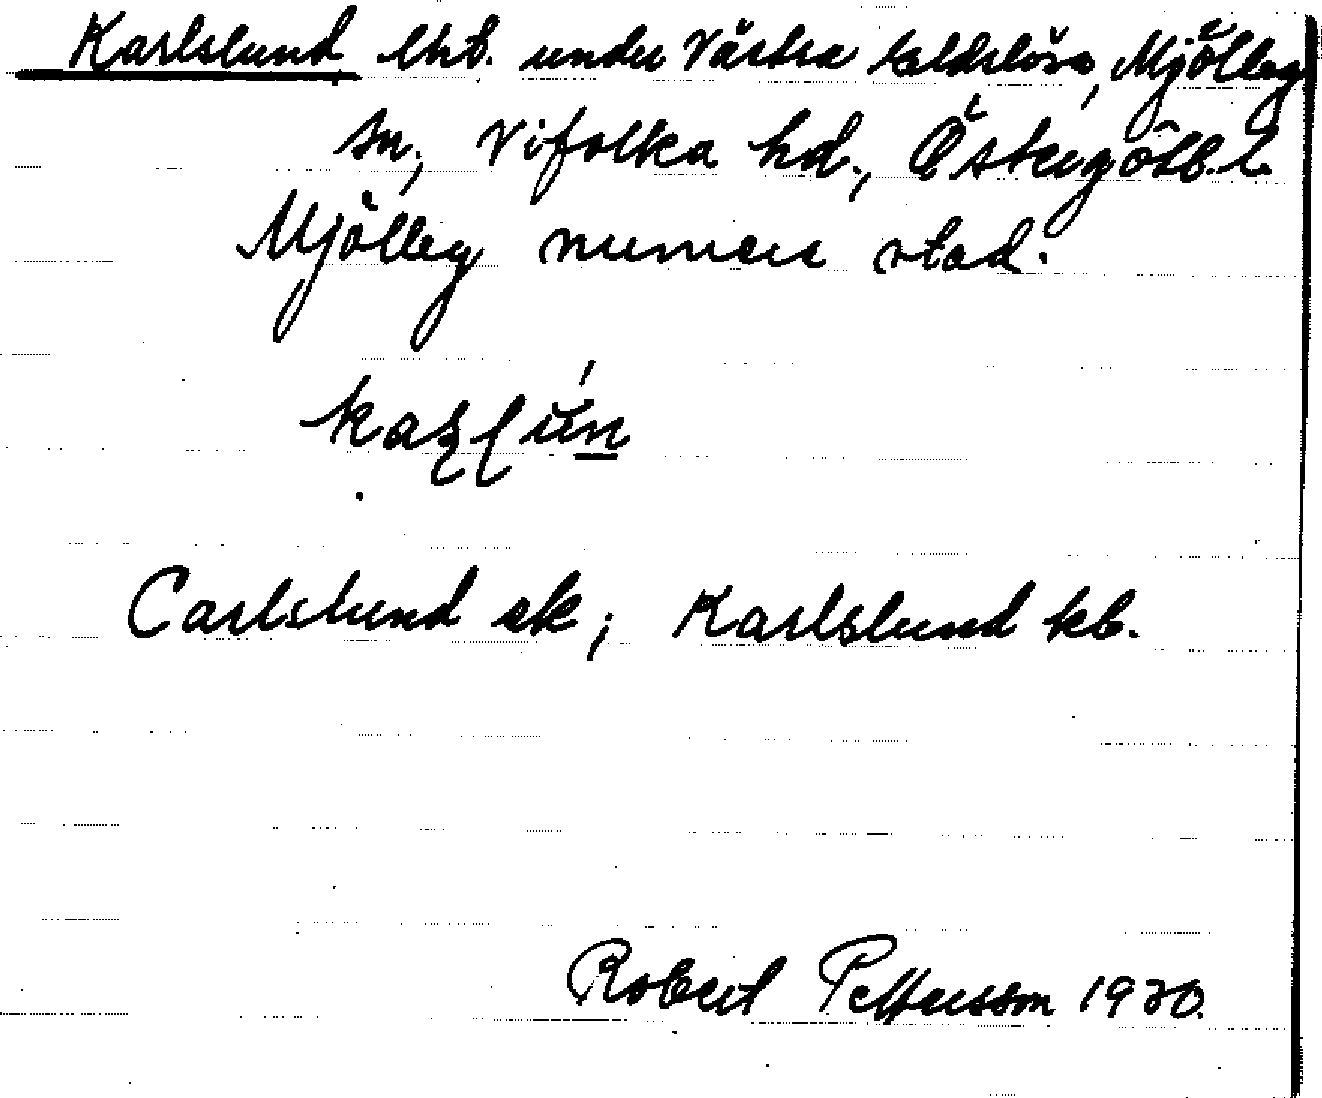 Karlslund lht. under Västra Eldslösa, Mjölby
sn, Vifolka hd., Östergötl. l.
Mjölby numera stad.
Carlslund ek; Karlslund kb.
Robert Pettersson 1930.